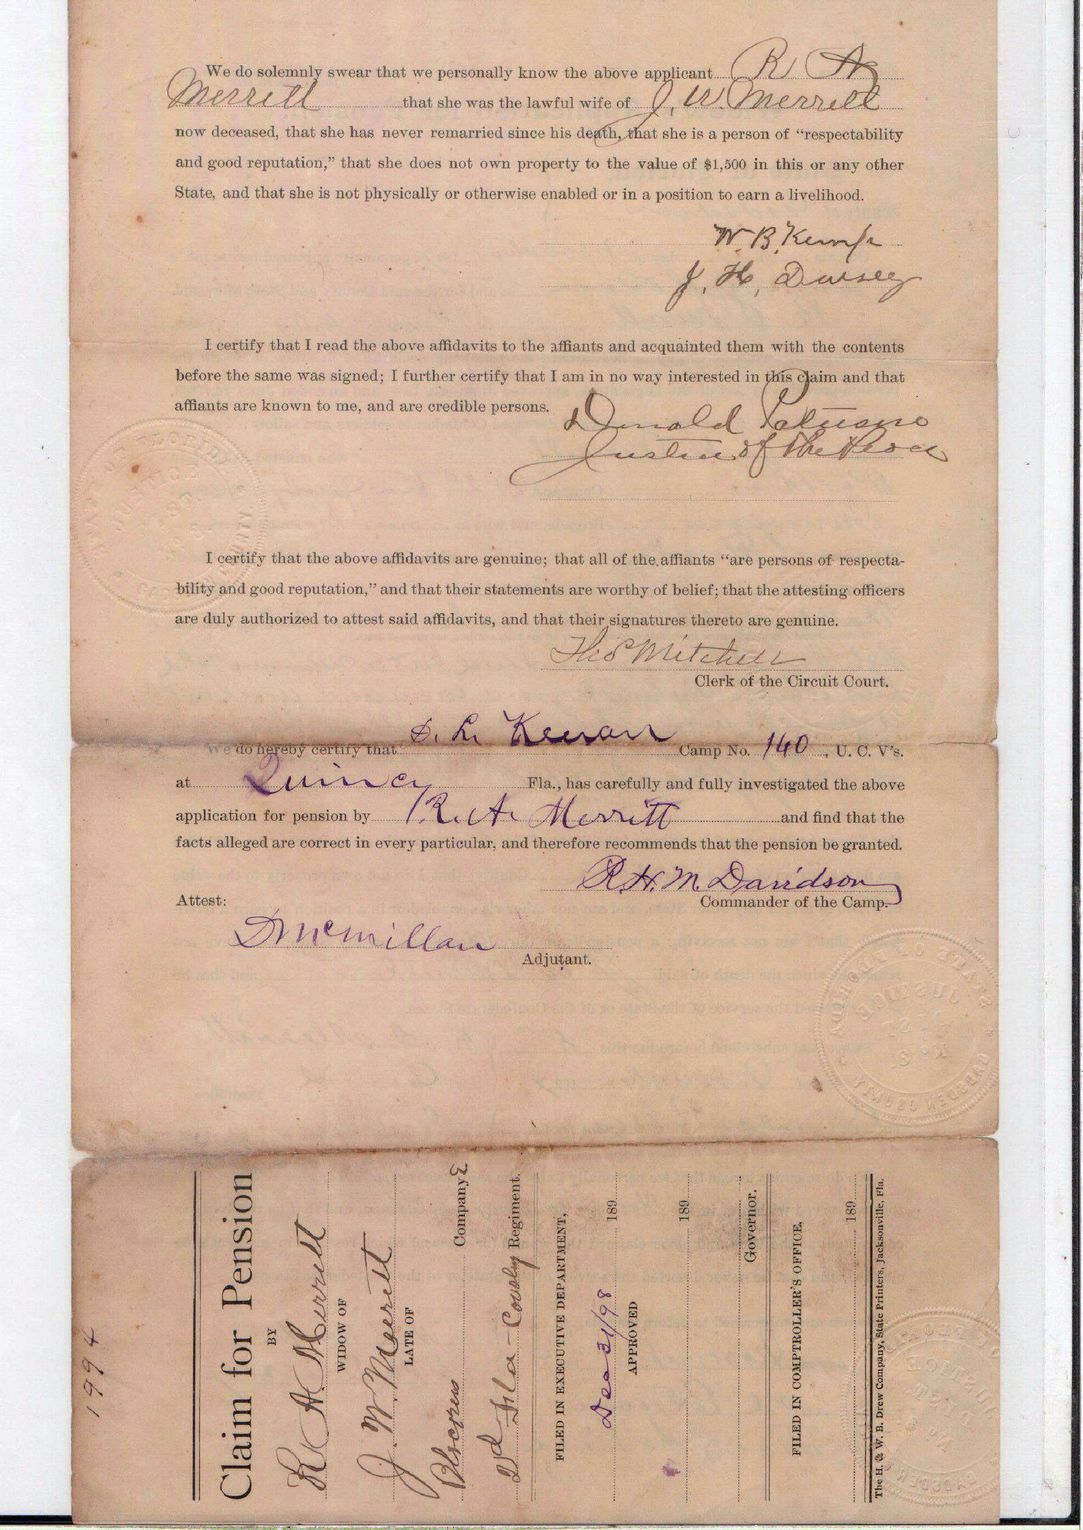 We do solemnly swear that we personally know the above applicant R A
Merritt that she was the lawful wife of J. W. Merritt
now deceased, that she has never remarried since his death, that she is a person of “respectability
and good reputation,” that she does not own property to the value of $1,500 in this or any other
State, and that she is not physically or otherwise enabled or in a position to earn a livelihood.
W. B. Kemp
J. H.
I certify that I read the above affidavits to the affiants and acquainted them with the contents
before the same was signed; I further certify that I am in no way interested in this claim and that
affiants are known to me, and are credible persons.
Donald
Justice of the Peace
I certify that the above affidavits are genuine; that all of the affiants “are persons of respecta-
bility and good reputation,” and that their statements are worthy of belief; that the attesting officers
are duly authorized to attest said affidavits, and that their signatures thereto are genuine.
Mitchell
Clerk of the Circuit Court.
We do hereby certify that D. L. Kenan Camp No. 140, U. C. V's.
at Quincy Fla., has carefully and fully investigated the above
application for pension by R. A. Merritt and find that the
facts alleged are correct in every particular, and therefore recommends that the pension be granted.
R H. M. Davidson
Commander of the Camp.
Attest:
D McMillan
Adjutant.
1994
Claim for Pension
BY
R A. Merritt
WIDOW OF
J. W. Merritt
LATE OF
Company E
2d Fla Regiment.
FILED IN EXECUTIVE DEPARTMENT,
Dec 31/98 189
APPROVED
189
Governor.
FILED IN COMPTROLLER'S OFFICE.
189
The H. & W. B. Drew Company, State Printers, Jacksonville, Fla.